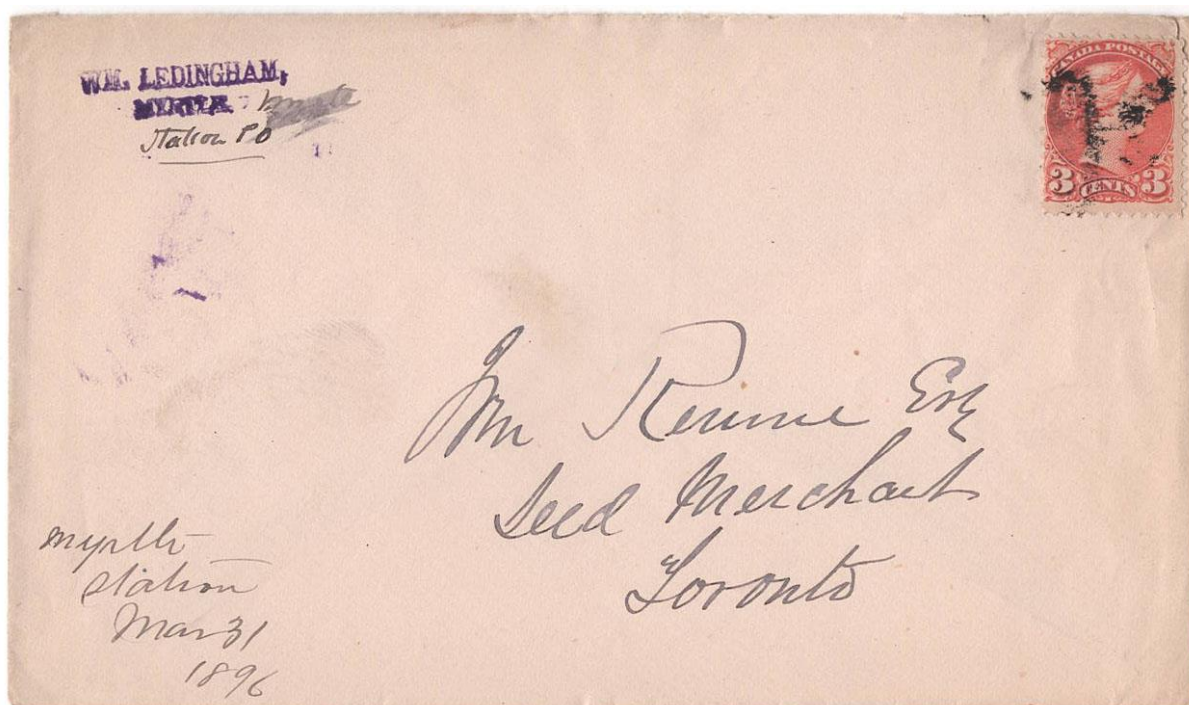 WM. LEDINGHAM,
MYRTLE
Station PO
CANADA POSTAGE
3 CENTS 3
Wm Rennie Esq
Seed Merchant
Toronto
Myrtle
Station
Mar 31
1896